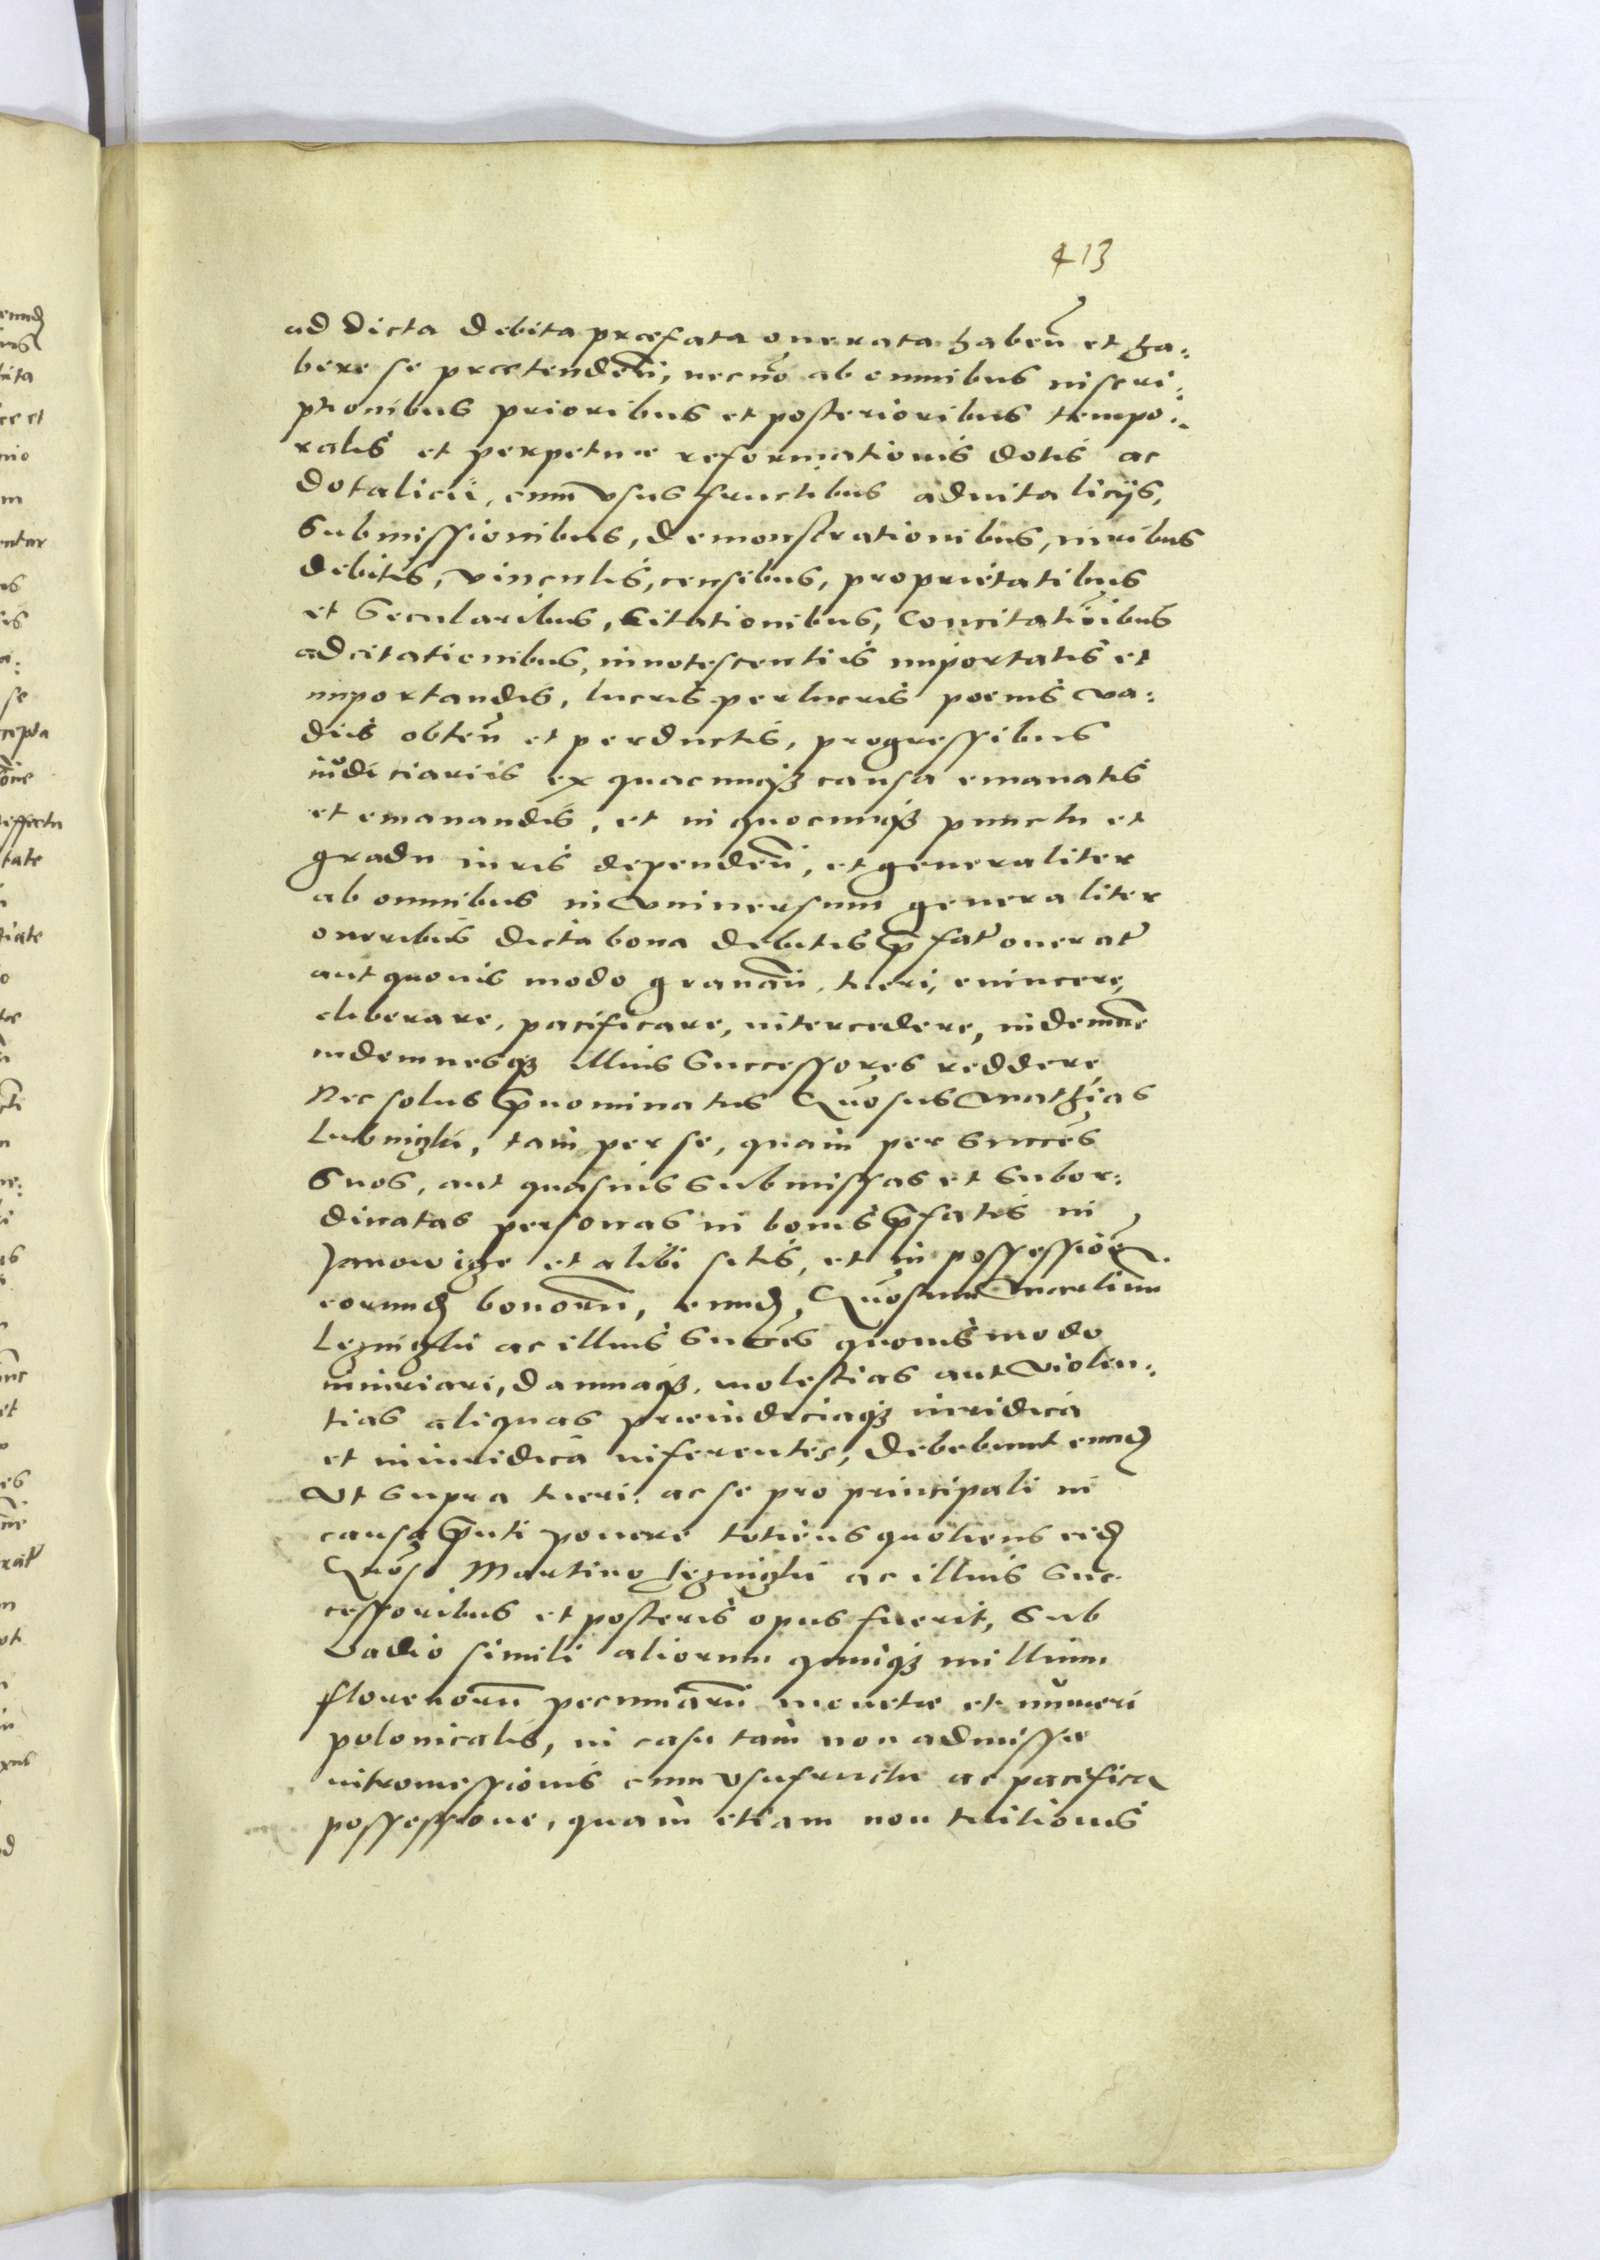 413
ad dicta debita præfata onerata habeñ et ha:
bere se prætendeñ, necno ab omnibus inscri:
ptionibus prioribus et posterioribus tempo:
ralis et perpetuæ reformationis dotis ac
dotalicii, cum vsus fructibus aduitalicijs,
submissionibus, demonstrationibus, iuribus
debitis, vinculis, censibus, proprietatibus
et secularibus, citationibus, concitationibus
adcitationibus, innotescentiis importatis et
importandis, lucris perlucris poenis va:
diis obteñ et perductis, progressibus
iudiciariis ex quacunqȝ causa emanatis
et emanandis, et in quocunqȝ punctu et
gradu iuris dependeñ, et generaliter
ab omnibus in vniuersum generaliter
oneribus dicta bona debitis p̄fat onerat
aut quouis modo grauañ, tueri, euincere,
eliberare, pacificare, intercedere, indemne
indemnesqȝ illius successores reddere
Nec solus p̄nominatus Gnosus Mathias
tam per se, quam per succes
suos, aut quasuis submissas et subor:
dinatas personas in bonis p̄fatis in
Janowicze et alibi sitis, et in possessione
eorund bonorū, eund Gnosum Martinum
ac illius succes quouis modo
iniuriari, damnaqȝ, molestias aut violen:
tias aliquas præiudiciaqȝ iuridica
et iniuridica inferentes, debebunt eund
vt supra tueri, ac se pro principali in
causa p̄nti ponere totiens quotiens eid
Gnoso Martino ac illius suc
cessoribus et posteris opus fuerit, sub
vadio simili aliorum quinqȝ millium
florenorū pecuniarū monetæ et numeri
polonicalis, in casu tam non admissæ
intromissionis cum vsufructu ac pacifica
possessione, quam etiam non tuitionis